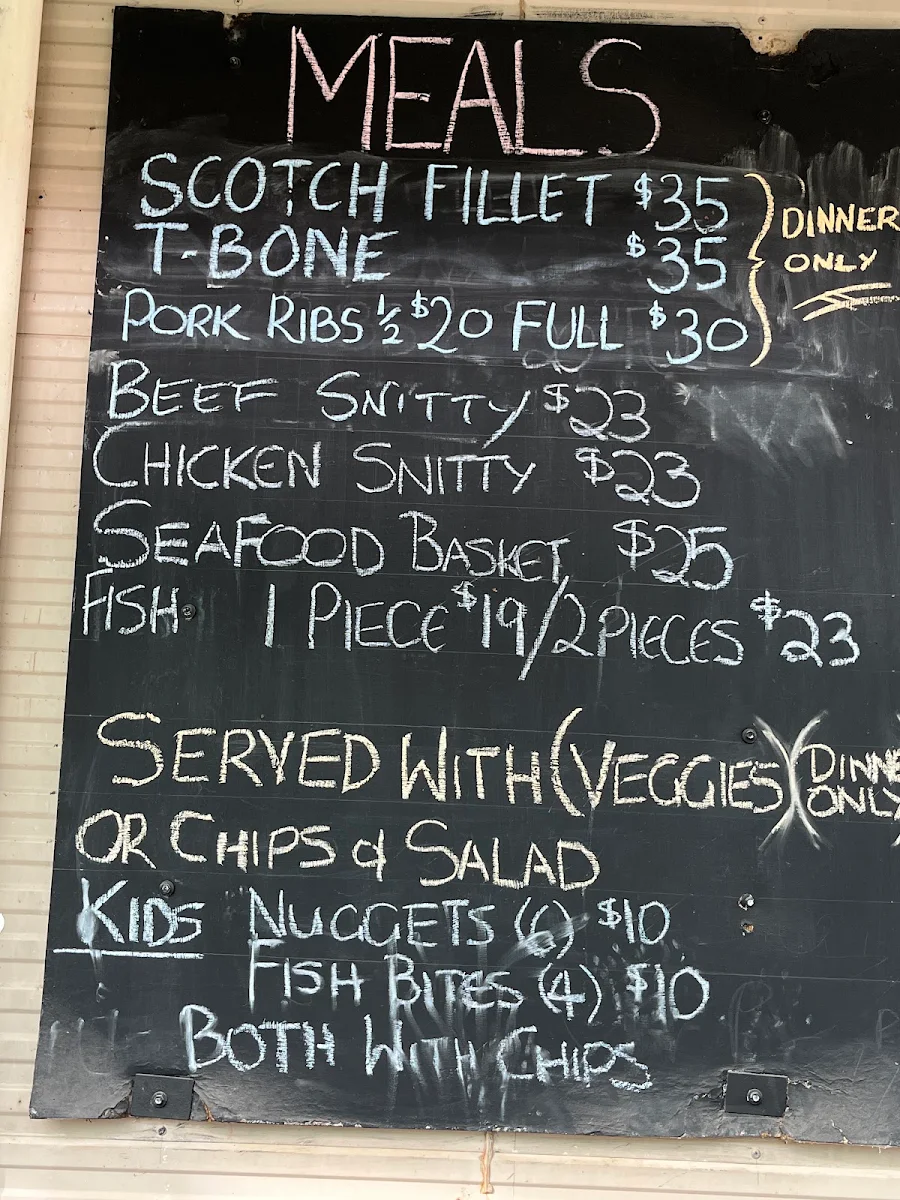 MEALS
SCOTCH FILLET $35
T-BONE $35
DINNER
ONLY
PORK RIBS ½ $20 FULL $30
BEEF SNITTY $23
CHICKEN SNITTY $23
SEAFOOD BASKET $25
FISH 1 PIECE $19/2 PIECES $23
SERVED WITH (VEGGIES) (DINNE
ONLY)
OR CHIPS & SALAD
KIDS NUGGETS (6) $10
FISH BITES (4) $10
BOTH WITH CHIPS